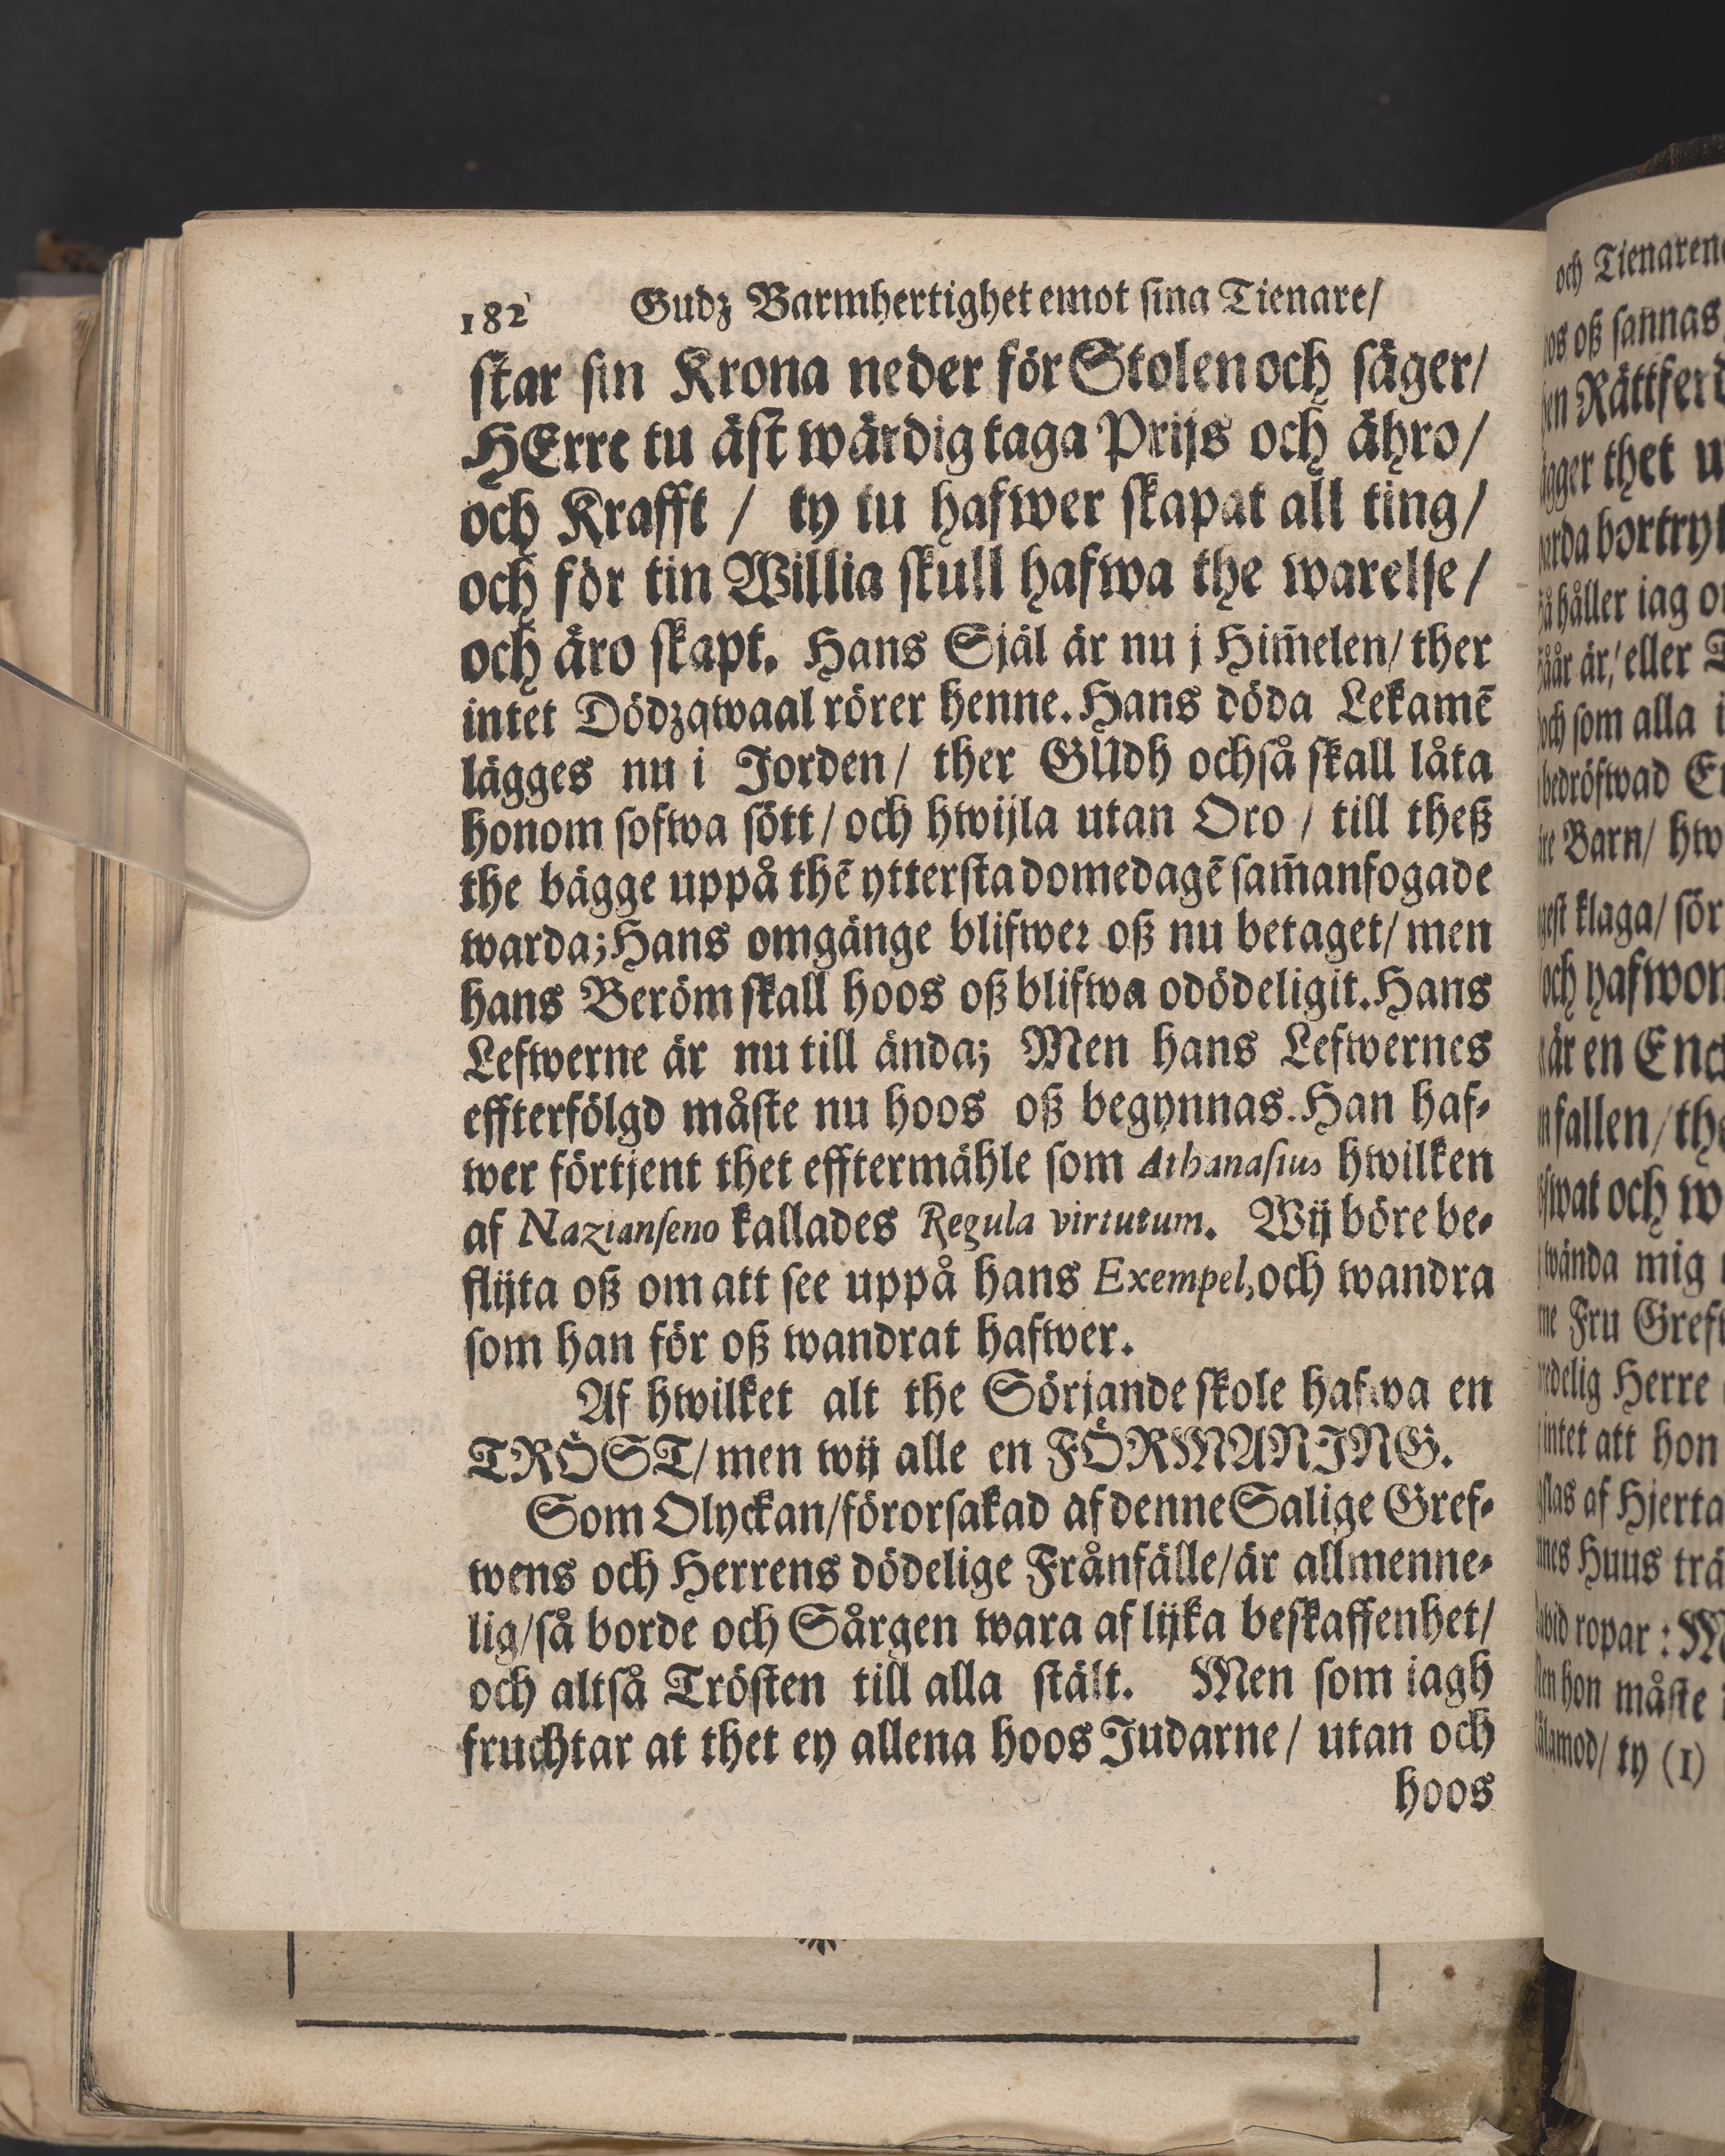 182 Gudz Barmhertighet emot sina Tienare/
star sin Krona neder för Stolen och säger/
HErre tu äst wärdig taga Prijs och ähro/
och Krafft / ty tu hafwer skapat all ting/
och för tin Willia skull hafwa the warelse/
och äro skapt. Hans Själ är nu j Him̃elen/ ther
intet Dödzqwaal rörer henne. Hans döda Lekamẽ
lägges nu i Jorden/ ther GUdh ochså skall låta
honom sofwa sött/ och hwijla utan Oro / till theß
the bägge uppå thẽ ytterstadomedagẽ sam̃anfogade
warda; Hans omgänge blifwer oß nu betaget/ men
hans Beröm skall hoos oß blifwa odödeligit. Hans
Lefwerne är nu till ända; Men hans Lefwernes
effterfölgd måste nu hoos oß begynnas. Han haf-
wer förtjent thet efftermähle som Athanasius hwilken
af Nazianseno kallades Regula virtutum. Wij böre be-
flijta oß om att see uppå hans Exempel, och wandra
som han för oß wandrat hafwer.
Af hwilket alt the Sörjande skole hafwa en
TRÖST/ men wij alle en FÖRMANING.
Som Olyckan/ förorsakad af denne Salige Gref-
wens och Herrens dödelige Frånfälle/ är allmenne-
lig/ så borde och Sårgen wara af lijka beskaffenhet/
och altså Trösten till alla stält. Men som iagh
fruchtar at thet ey allena hoos Judarne/ utan och
hoos
och
oß sannas
Rättferd
thet
bortry
håller iag
är/ eller
som alla
bedröfwad
Barn/
klaga/
hafwon
är en
fallen/
och
wända mig
Fru
Herre
intet att hon
af Hjerta
Huus
ropar :
hon måste
ty (1)